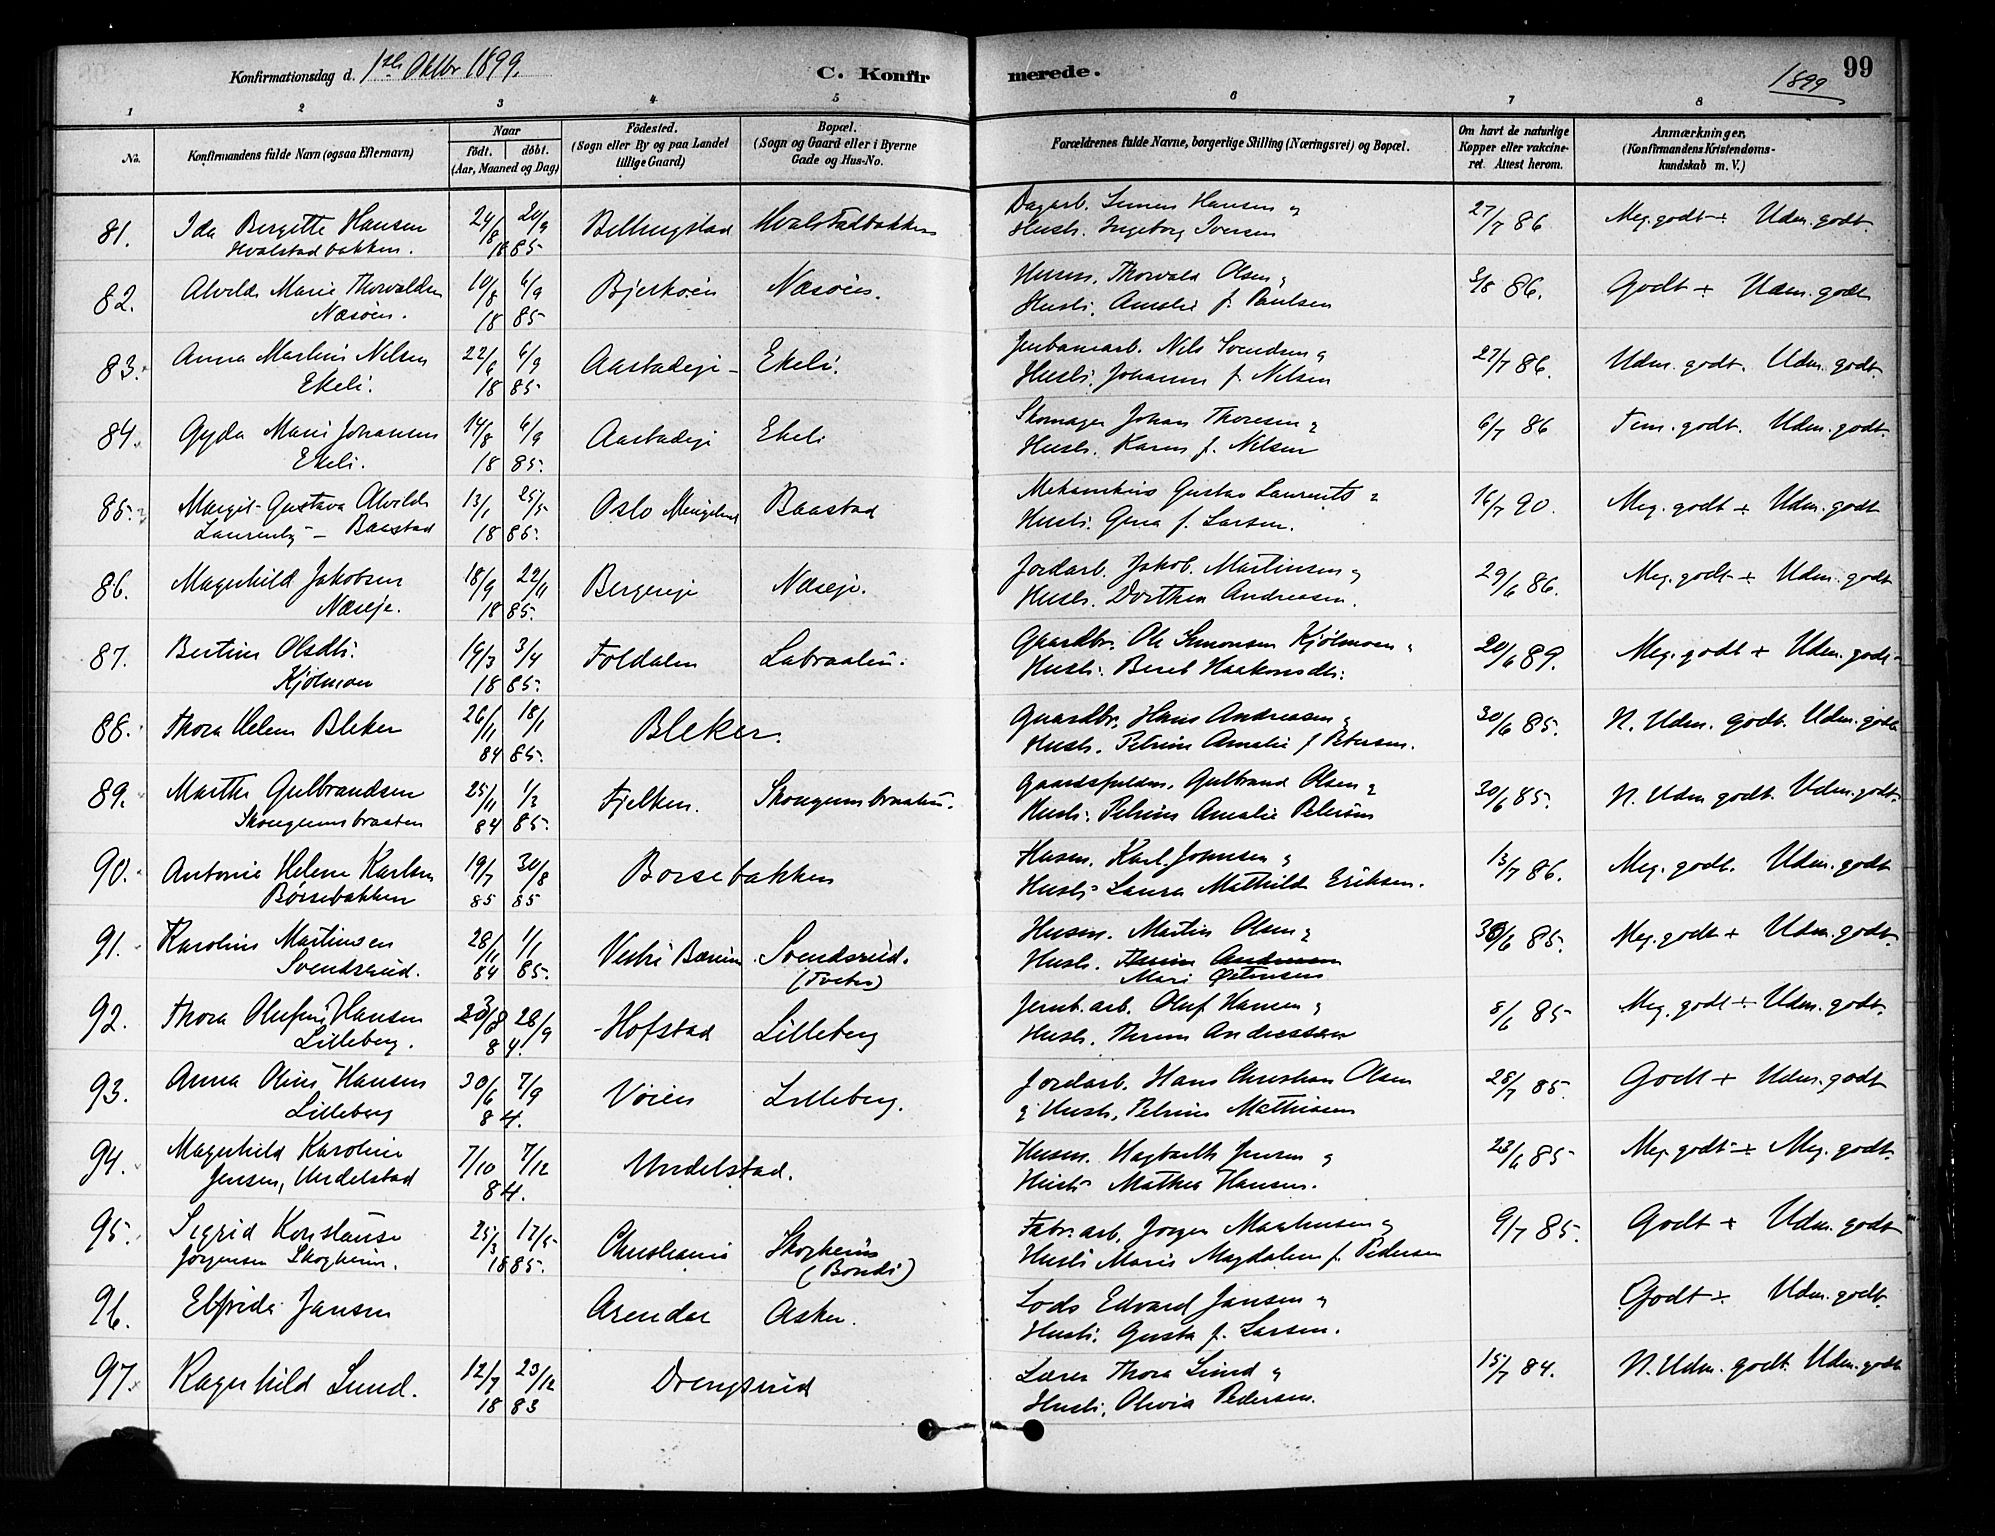 Konfirmationsdag d. 1ste Oktbr 1899. C. Konfirmerede. 1899 99
1 2 3 4 5 6 7 8
No. Konfirmandens fulde Navn (ogsaa Efternavn) Naar født. døbt. (Aar, Maaned og Dag) Fødested. (Sogn eller By og paa Landet tillige Gaard) Bopæl. (Sogn og Gaard eller i Byerne Gade og Hus-No. Forældrenes fulde Navne, borgerlige Stilling (Næringsvei) og Bopæl. Om havt de naturlige Kopper eller vakcineret. Attest herom. Anmærkninger, (Konfirmandens Kristendomskundskab m. V.)
81. Ida Bergette Hansen 24/8 20/9 Billingstad Hvalstadbakken Dagarb. Simen Hansen og 27/7 86 Meg. godt + Udm. godt
Hvalstadbakken. 1885 Hustr. Ingeborg Iversen
82. Alvilde Marie Thorvaldsen 10/8 6/9 Bjerkøen Næsøen. Husm. Thorvald Olsen og 3/8 86. Godt + Udm. godt
Næsøen. 1885 Hustr. Amalie f. Paulsen
83. Anna Martine Nilsen 22/6 6/9 Aastadeje Ekeli. Jernbanearb. Nils Svendsen og 27/7 86. Udm. godt. Udm. godt.
Ekeli. 1885 Hustr. Johanne f. Nilsen
84. Gyda Marie Johansen 14/8 6/9 Aastadeje Ekeli Skomager Johan Thoresen og 6/7 86 Tem. godt. Udm. godt.
Ekeli. 1885. Hustr. Karen f. Nilsen
85. Margit Gustava Alvilde 13/1 25/5 Oslo Menighed Baastad Mekanikus Gustav Laurents og 16/7 90. Meg. godt + Udm. godt
Baastad 1885. Hustr. Gina f. Larsen.
86. Magnhild Jakobsen 18/9 22/11 Bergereje Næseje. Jordarb. Jakob Martinsen og 29/6 86. Meg. godt + Udm. godt
Næseje. 1885. Hustr. Dorthea Andreasen.
87. Bertine Olsdtr. 19/3 3/4 Foldalen Labraaten. Gaardbr. Ole Simonsen Kjølmoen 20/6 89. Meg. godt + Udm. godt
Kjølmoen 1885. Hustr. Beret Haakonsdtr.
88. Thora Helene Bleker 26/11 18/1 Bleker. Gaardbr. Hans Andreasen og 30/6 85. N. Udm. godt. Udm. godt
84 85. Hustr. Petrine Amalie f. Petersen.
89. Marthe Gulbrandsen 25/11 1/3 Fjelken. Skougumsbraaten. Gulbrand Olsen og 30/6 85. N. Udm godt. Udm. godt.
Skougumsbraaten 84 85. Hustr. Petrine Amalie Petersen
90. Antonie Helene Karlsen 19/7 30/8 Børsebakken Husm. Karl Johnsen og 13/7 86. Meg. godt. Udm. godt
Børsebakken 85 85 Hustr. Laura Mathilde Eriksen.
91. Karoline Martinsen 28/11 1/1 Vestre Bærum Svendsrud. Husm. Martin Olsen og 30/6 85. Meg. godt + Udm. godt.
Svendsrud. 84 85. (Tveter) Hustr. Mari Østensen
92. Thora Olufine Hansen 23/8 28/9 Hofstad Lilleberg Jernb. arb. Oluf Hansen og 8/6 85 Meg. godt + Udm. godt.
Lilleberg. 84. Hustr. Andreassen
93. Anna Oline Hansen 30/6 7/9 Vøien Lilleberg. Jordarb. Hans Christian Olsen 28/7 85. Godt + Udm. godt
Lilleberg 84. og Hustr. Petrine Mathisen
94. Magnhild Karoline 7/10 7/12 Undelstad. Husm. Hagbarth Jensen og 23/6 85 Meg. godt + Meg. godt.
Jensen, Undelstad 84. Hustr. Mathea Hansen.
95. Sigrid Konstanse 25/3 17/5 Christiania Skogheim Fabr. arb. Jørgen Mathisen og 9/7 85. Godt + Udm. godt
Jørgensen Skogheim. 1885. (Bondi) Hustr. Marie Magdalene f. Pedersen
96. Elfrida Jansen Arendal Asker. Lods Edvard Jansen og Godt + Udm. godt.
Hustr. Gusta f. Larsen.
97. Ragnhild Lund. 12/7 23/12 Drengsrud Lærer Thora Lund og 15/7 84. N. Udm. godt. Udm. godt
1883 Hustr. Olivia Pedersen.